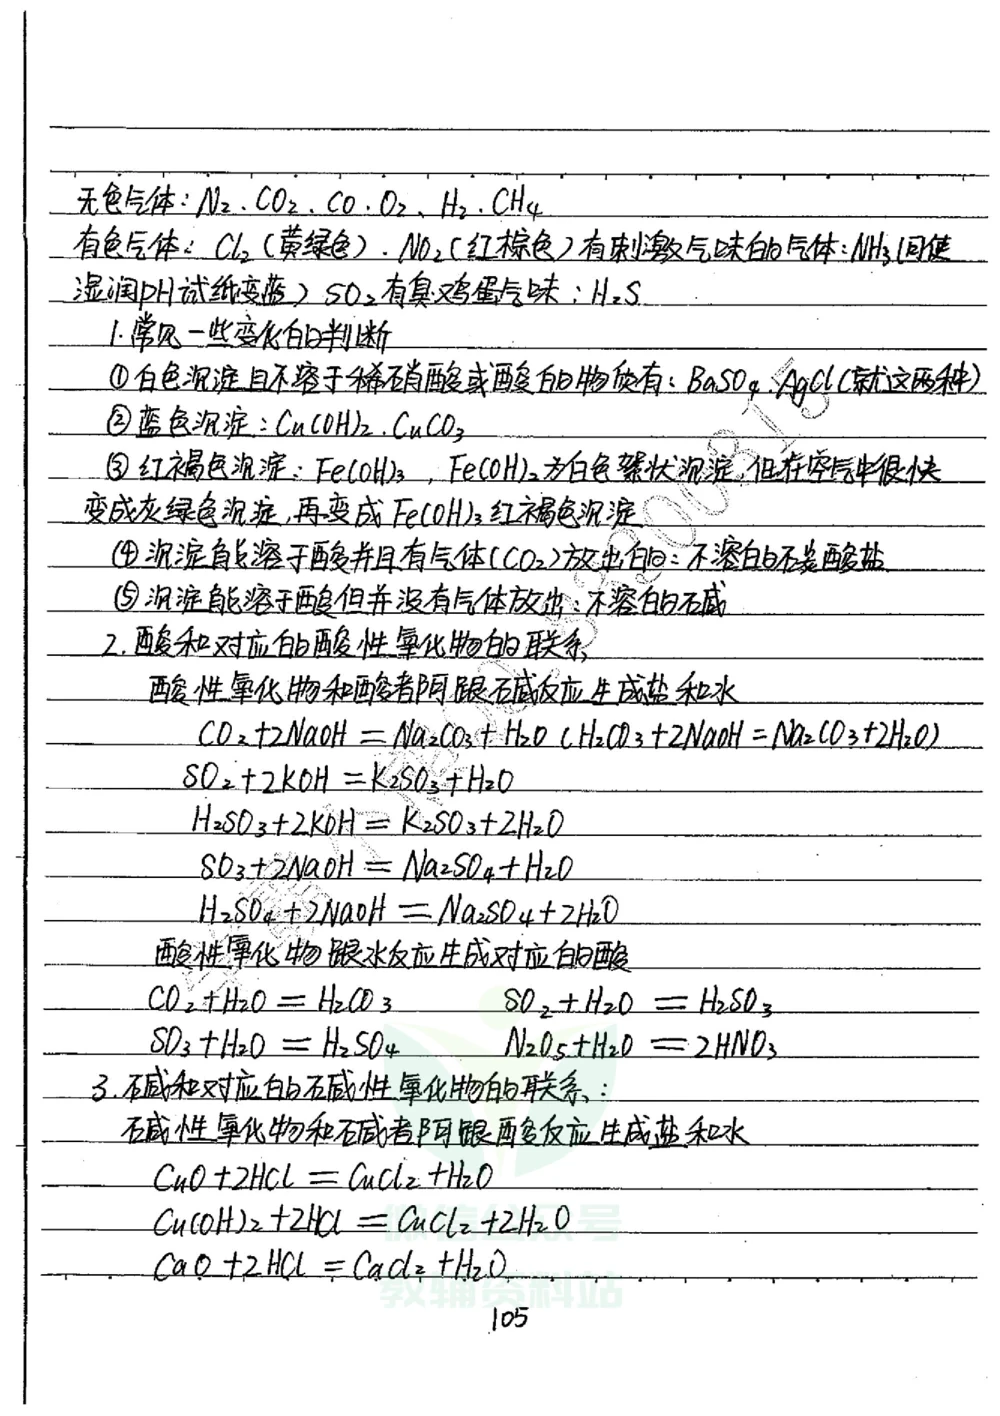 无色气体：N₂、CO₂、CO、O₂、H₂、CH₄
有色气体：Cl₂（黄绿色）、NO₂（红棕色）有刺激气味的气体：NH₃（同使
湿润pH试纸变蓝）SO₂有臭鸡蛋气味：H₂S
1.常见一些变化的判断
①白色沉淀且不溶于稀硝酸或酸的物质有：BaSO₄、AgCl（就这两种）
②蓝色沉淀：Cu(OH)₂、CuCO₃
③红褐色沉淀：Fe(OH)₃，Fe(OH)₂为白色絮状沉淀，但在空气中很快
变成灰绿色沉淀，再变成Fe(OH)₃红褐色沉淀
④沉淀能溶于酸并且有气体(CO₂)放出的：不溶的碳酸盐
⑤沉淀能溶于酸但并没有气体放出：不溶的碱
2.酸和对应的酸性氧化物的联系
酸性氧化物和酸都可跟碱反应生成盐和水
CO₂+2NaOH=Na₂CO₃+H₂O（H₂CO₃+2NaOH=Na₂CO₃+2H₂O）
SO₂+2KOH=K₂SO₃+H₂O
H₂SO₃+2KOH=K₂SO₃+2H₂O
SO₃+2NaOH=Na₂SO₄+H₂O
H₂SO₄+2NaOH=Na₂SO₄+2H₂O
酸性氧化物跟水反应生成对应的酸
CO₂+H₂O=H₂CO₃ SO₂+H₂O=H₂SO₃
SO₃+H₂O=H₂SO₄ N₂O₅+H₂O=2HNO₃
3.碱和对应的碱性氧化物的联系：
碱性氧化物和碱都可跟酸反应生成盐和水
CuO+2HCl=CuCl₂+H₂O
Cu(OH)₂+2HCl=CuCl₂+2H₂O
微信公众号
CaO+2HCl=CaCl₂+H₂O
教辅资料站
105